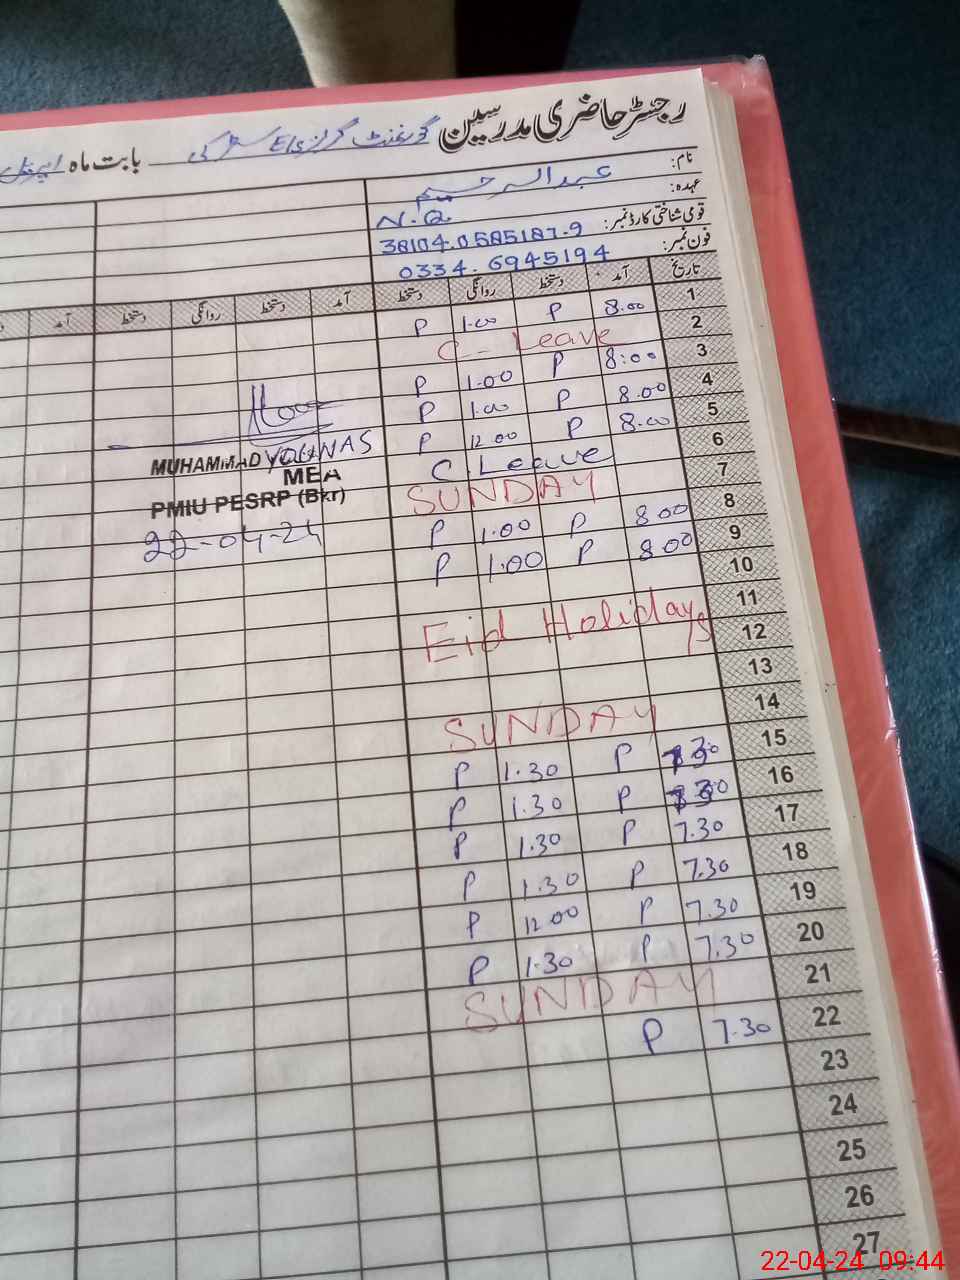 رجسٹر حاضری مدرسین گورنمنٹ گرلز بابت ماہ اپریل
نام: عبدالرحیم
عہدہ: N.Q.
قومی شناختی کارڈ نمبر: 38104.0585187.9
فون نمبر: 0334.6945194
تاریخ آمد دستخط روانگی دستخط آمد دستخط روانگی دستخط آمد
1 8.00 P 1.00 P
2 C - Leave
3 8:00 P 1.00 P
4 8.00 P 1.00 P
5 8.00 P 12.00 P
6 C. Leave
7 SUNDAY
8 8.00 P 1.00 P
9 8.00 P 1.00 P
10
11 Eid Holidays
12
13
14 SUNDAY
15 7.30 P 1.30 P
16 7.30 P 1.30 P
17 7.30 P 1.30 P
18 7.30 P 1.30 P
19 7.30 P 12.00 P
20 7.30 P 1.30 P
21 SUNDAY
22 7.30 P
23
24
25
26
27
MUHAMMAD YOUNAS
MEA
PMIU PESRP (Bkr)
22-04-24
22-04-24 09:44